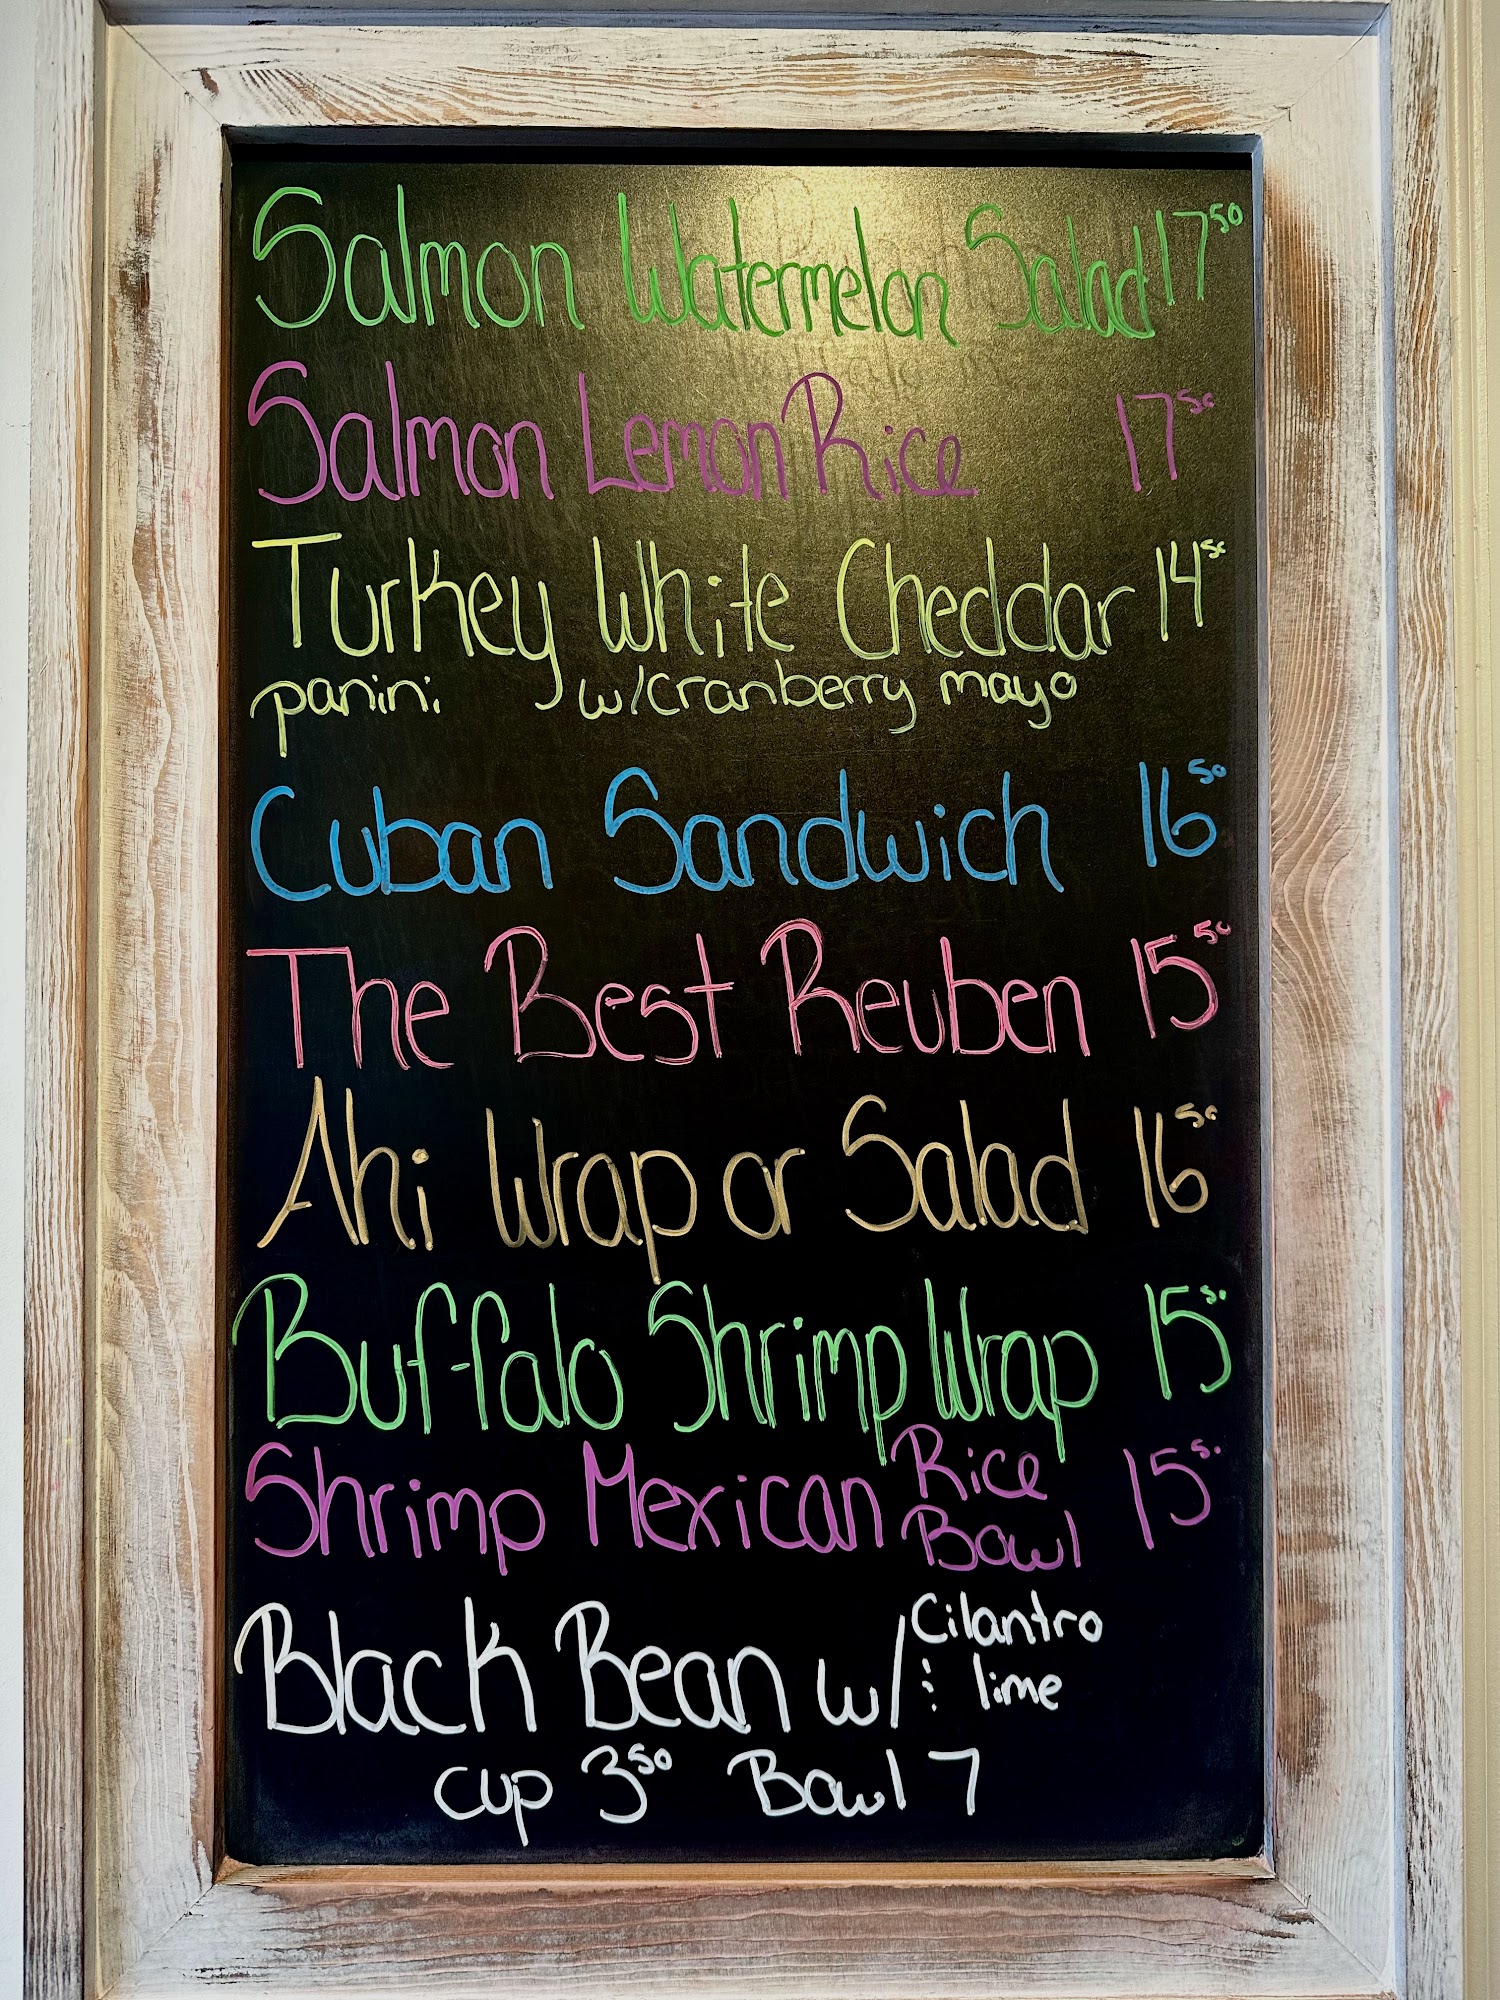 Salmon Watermelon Salad 17 50
Salmon Lemon Rice 17 50
Turkey White Cheddar 14 50
panini w/cranberry mayo
Cuban Sandwich 16 50
The Best Reuben 15 50
Ahi Wrap or Salad 16 50
Buffalo Shrimp Wrap 15 50
Shrimp Mexican Rice Bowl 15 50
Black Bean w/ Cilantro & lime
cup 3 50 Bowl 7